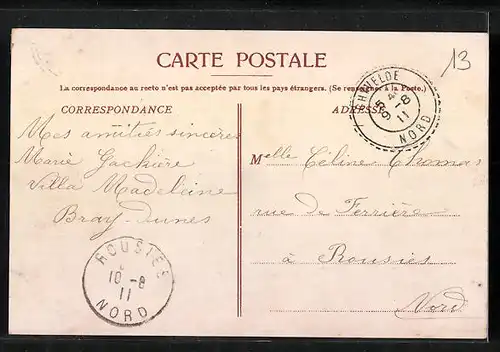 13
CARTE POSTALE
La correspondance au recto n'est pas acceptée par tous les pays étrangers. (Se renseigner à la Poste.)
CORRESPONDANCE
Mes amitiés sincères
Marie Gachière
Villa Madeleine
Bray-Dunes
ROUSIES
10-8
11
NORD
ADRESSE
GHYVELDE
9-8
11
NORD
Melle Céline Thomas
rue de Ferrière
à Rousies
Nord